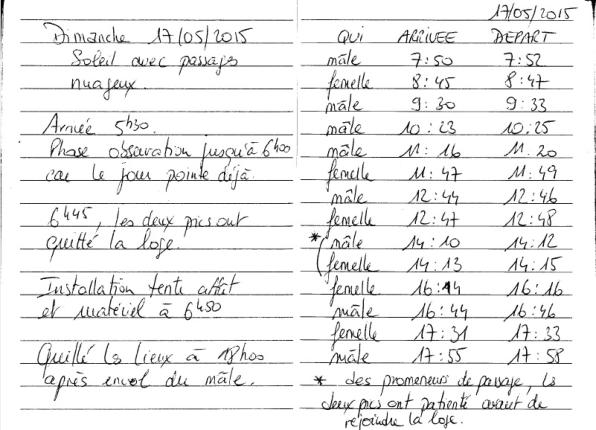 Dimanche 17/05/2015
Soleil avec passages
nuageux.
Arrivée 5h30.
Phase observation jusqu'à 6h00
car le jour pointe déjà.
6h45, les deux pics ont
quitté la loge.
Installation tente affût
et matériel à 6h50
Quitté les lieux à 18h00
après envol du mâle.
17/05/2015
QUI ARRIVEE DEPART
mâle 7:50 7:52
femelle 8:45 8:47
mâle 9:30 9:33
mâle 10:23 10:25
mâle 11:16 11.20
femelle 11:47 11:49
mâle 12:44 12:46
femelle 12:47 12:48
* ( mâle 14:10 14:12
femelle 14:13 14:15
femelle 16:14 16:16
mâle 16:44 16:46
femelle 17:31 17:33
mâle 17:55 17:58
* des promeneurs de passage, les
deux pics ont patienté avant de
rejoindre la loge.